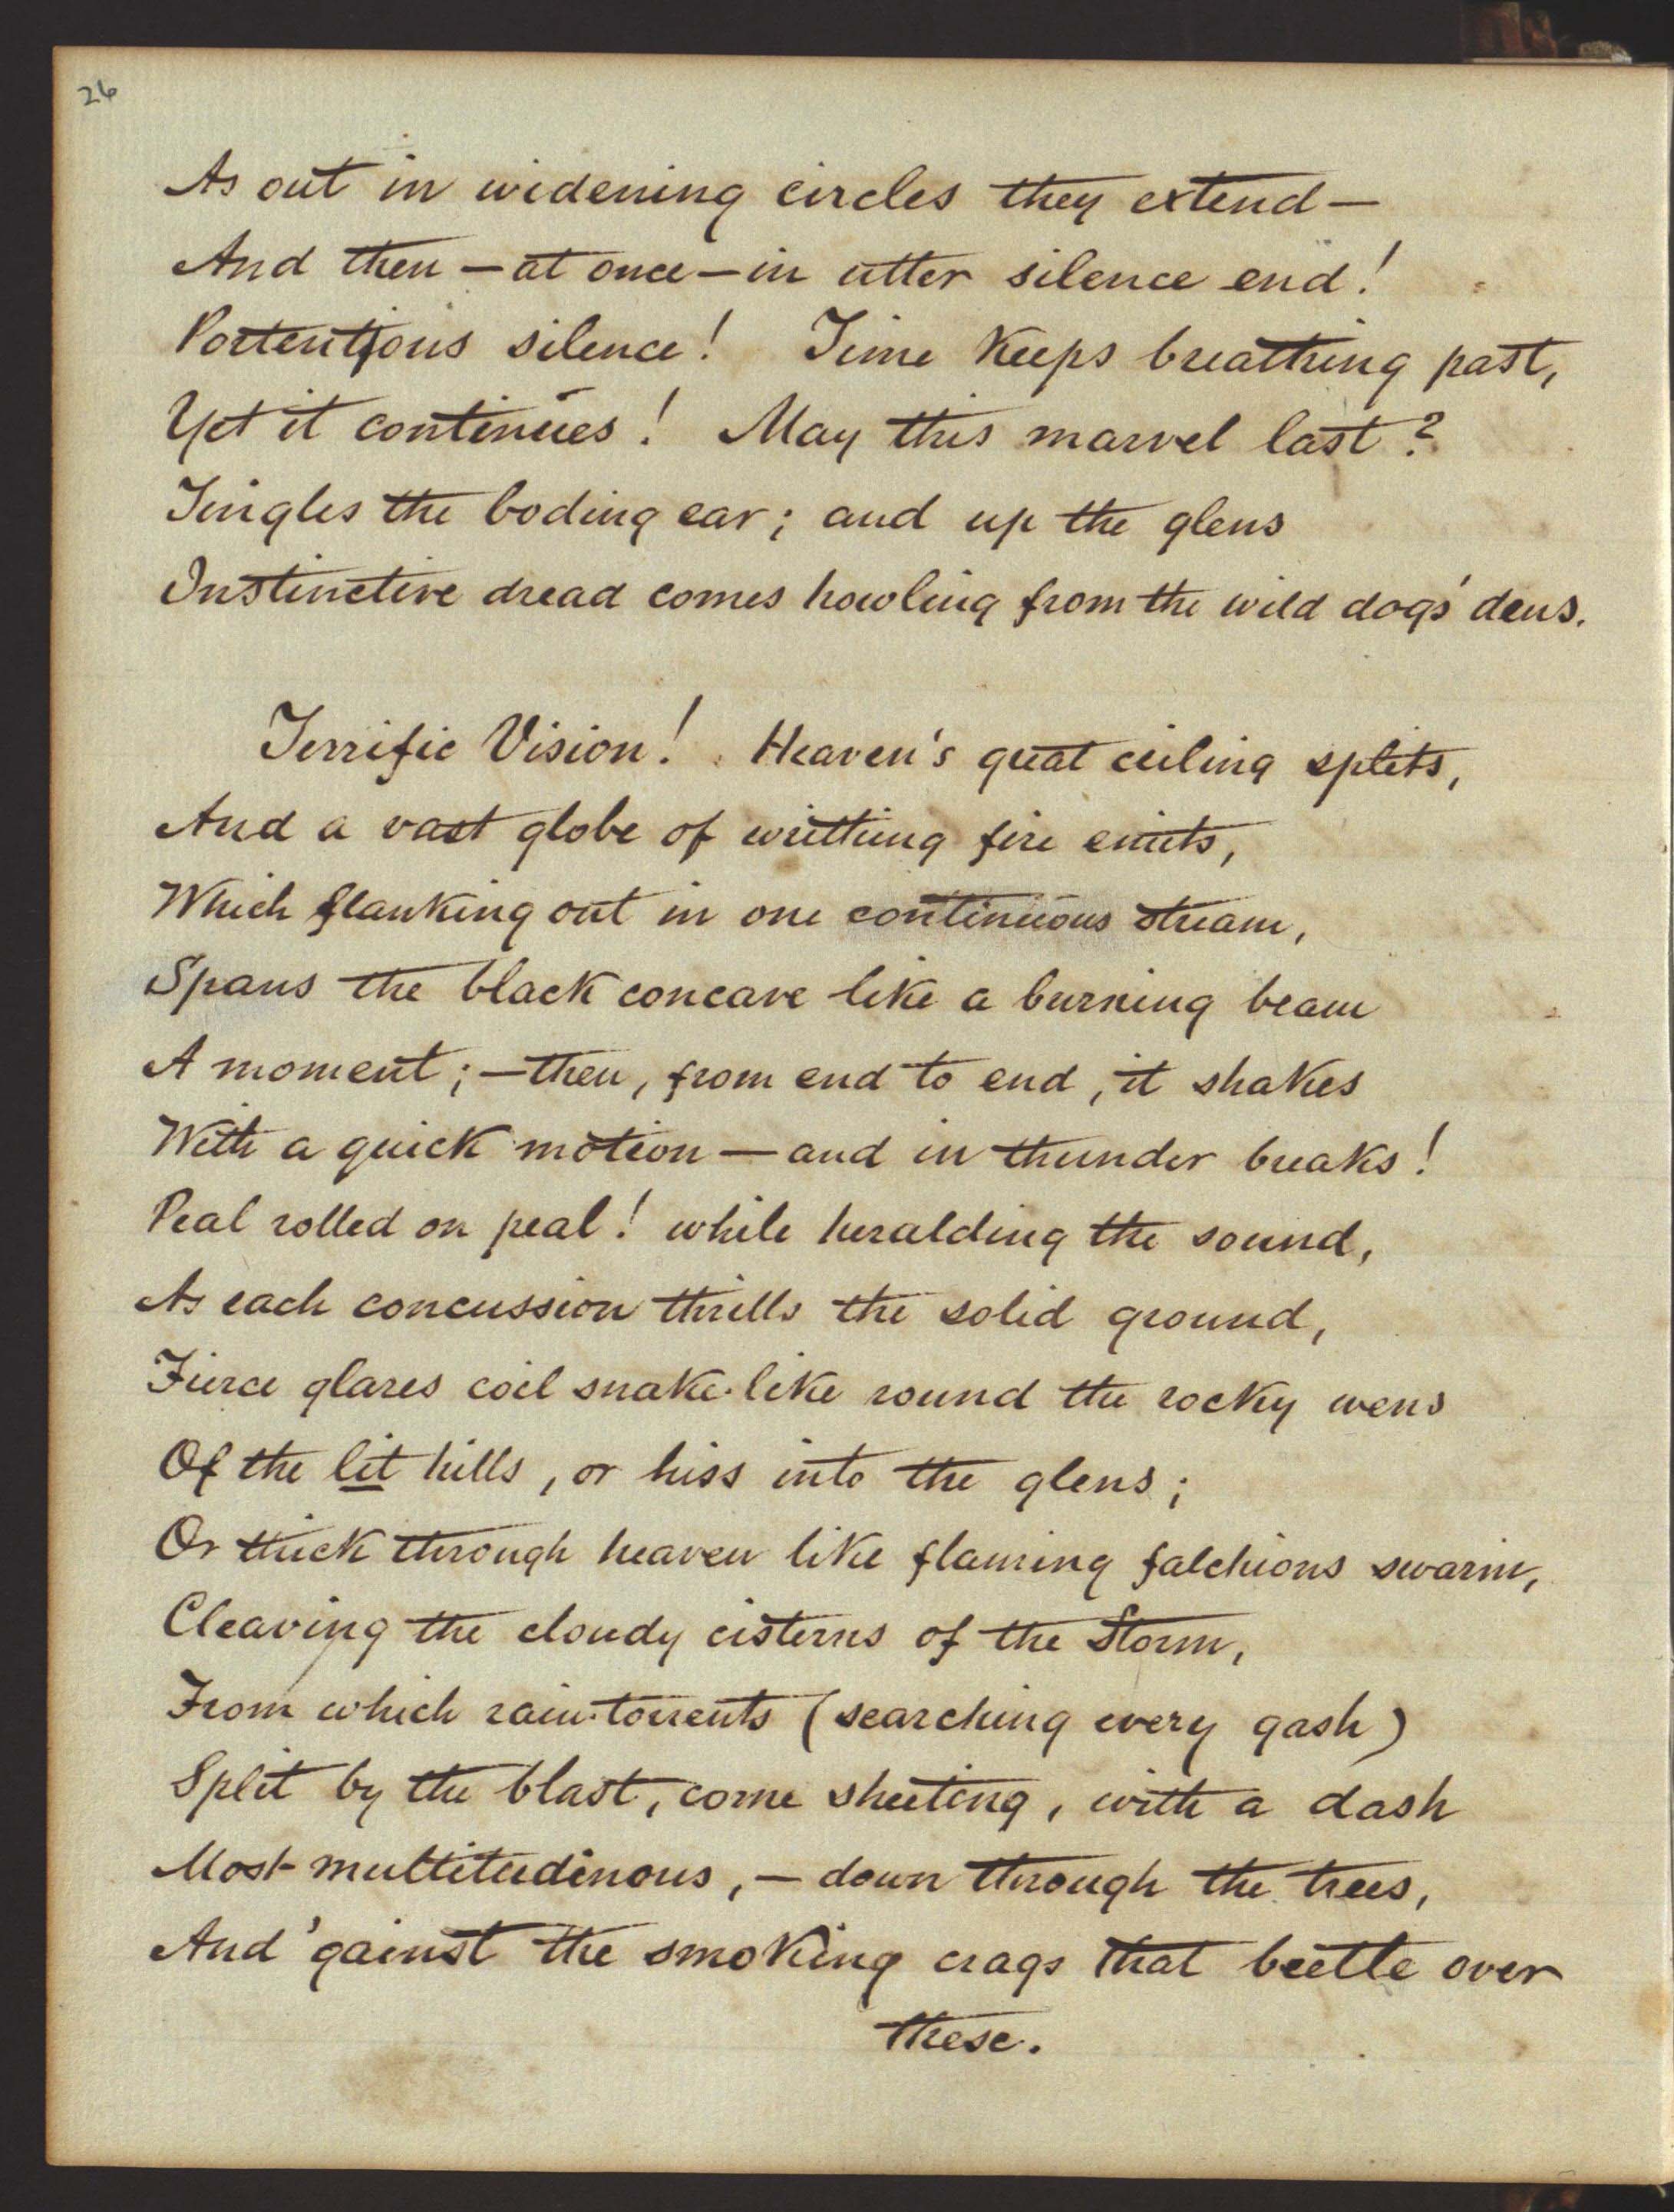 26
As out in widening circles they extend—
And then—at once—in utter silence end!
Portentious silence! Time keeps breathing past,
Yet it continues! May this marvel last?
Tingles the boding ear; and up the glens
Instinctive dread comes howling from the wild dogs' dens.
Terrific Vision! Heaven's great ceiling splits,
And a vast globe of writhing fire emits,
Which flanking out in one continuous stream,
Spans the black concave like a burning beam
A moment;—then, from end to end, it shakes
With a quick motion—and in thunder breaks!
Peal rolled on peal! while heralding the sound,
As each concussion thrills the solid ground,
Fierce glares coil snake-like round the rocky wens
Of the lit hills, or hiss into the glens;
Or thick through heaven like flaming falchions swarm,
Cleaving the cloudy cisterns of the Storm,
From which rain-torrents (searching every gash)
Split by the blast, come sheeting, with a dash
Most multitudinous,—down through the trees,
And 'gainst the smoking crags that beetle over
these.